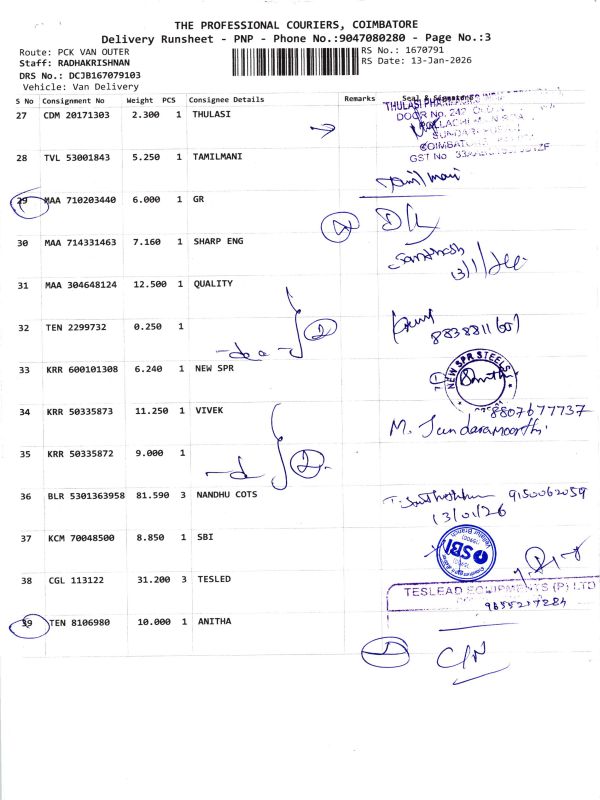 THE PROFESSIONAL COURIERS, COIMBATORE
Delivery Runsheet - PNP - Phone No.:9047080280 - Page No.:3
Route: PCK VAN OUTER
RS No.: 1670791
Staff: RADHAKRISHNAN
RS Date: 13-Jan-2026
DRS No.: DCJB167079103
Vehicle: Van Delivery
S No Consignment No Weight PCS Consignee Details Remarks Seal & Signature
27 CDM 20171303 2.300 1 THULASI
DOOR No. 242
COIMBATORE
GST No
28 TVL 53001843 5.250 1 TAMILMANI
Tamilmani
29 MAA 710203440 6.000 1 GR
D/L
30 MAA 714331463 7.160 1 SHARP ENG
Santhosh
31 MAA 304648124 12.500 1 QUALITY
32 TEN 2299732 0.250 1
2
33 KRR 600101308 6.240 1 NEW SPR
NEW SPR STEELS
34 KRR 50335873 11.250 1 VIVEK
8807677737
M. Sundaramoorthi
35 KRR 50335872 9.000 1
2
36 BLR 5301363958 81.590 3 NANDHU COTS
9150062059
13/01/26
37 KCM 70048500 8.850 1 SBI
SBI
38 CGL 113122 31.200 3 TESLED
TESLEAD EQUIPMENTS (P) LTD
39 TEN 8106980 10.000 1 ANITHA
C/N